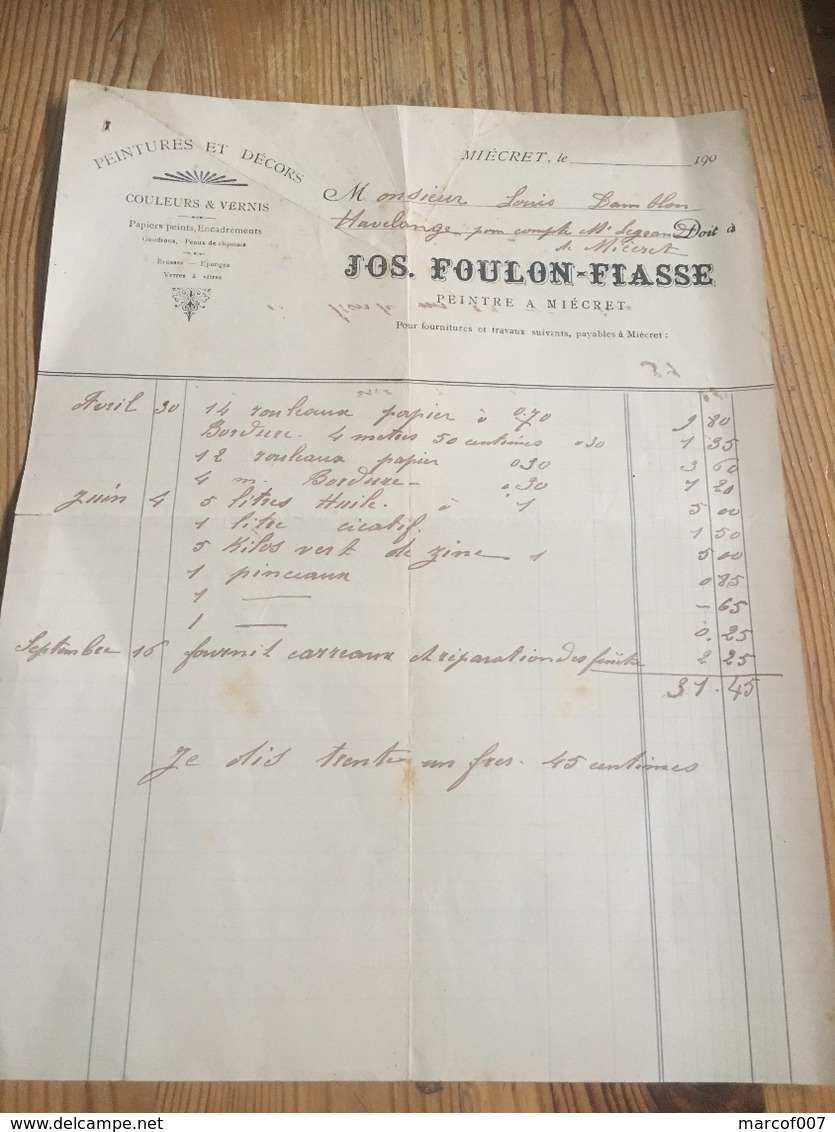 PEINTURES ET DÉCORS
COULEURS & VERNIS
Papiers peints, Encadrements
Goudrons, Peaux de chamois
Brosses — Eponges
Verres à vitres
MIÉCRET, le 190
Monsieur Louis Damblon
Havelange pour compte Mr Legrand Doit à
de Miécret
JOS. FOULON-FIASSE
PEINTRE A MIÉCRET
Pour fournitures et travaux suivants, payables à Miécret :
Avril 30 14 rouleaux papier à 0.70 9 80
Bordure. 4 metres 50 centimes 0 30 1 35
12 rouleaux papier 0.30 3 60
4 m. Bordure — 0.30 1 20
Juin 4 5 litres Huile. à 1 5 00
1 litre cicatif. 1 50
5 Kilos vert de zinc 1 5 00
1 pinceaux 0 85
1 — – 65
1 — 0. 25
Septembre 16 fournit carreaux et réparation des 2 25
31.45
Je dis trente un frcs. 45 centimes
marcof007